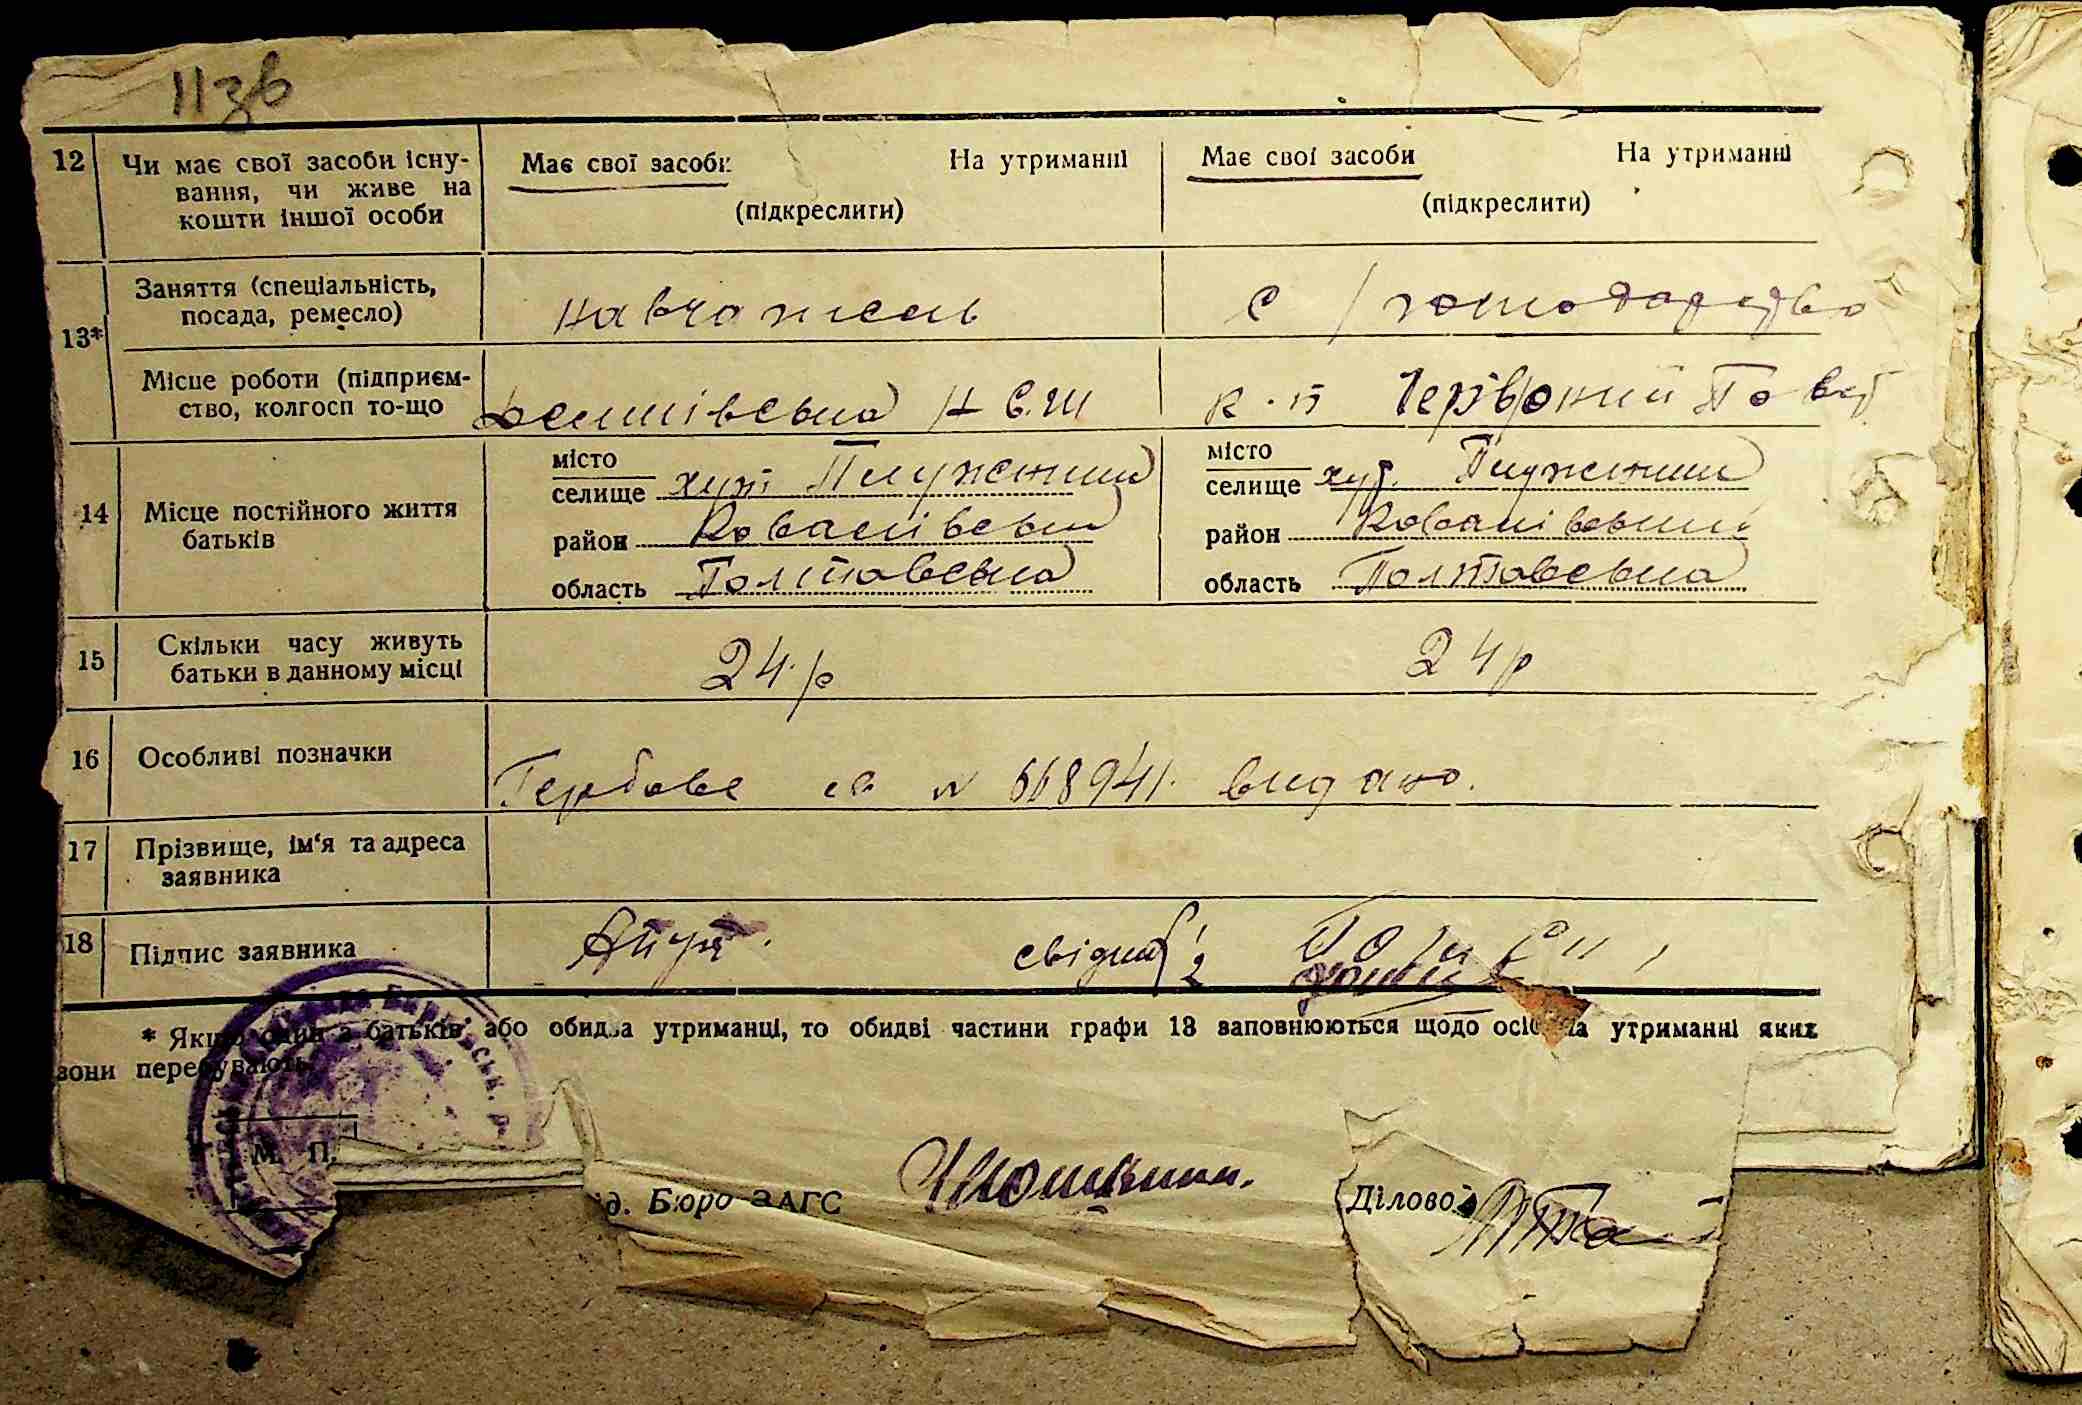 11зв
12 Чи має свої засоби існу-
вання, чи живе на
кошти іншої особи
Має свої засоби На утриманні
(підкреслити)
Має свої засоби На утриманні
(підкреслити)
13*
Заняття (спеціальність,
посада, ремесло)
навчатель
с/господарство
Місце роботи (підприєм-
ство, колгосп то-що
Н С.Ш
к-п Червоний
14 Місце постійного життя
батьків
місто
селище хут
район
область Полтавська
місто
селище хут.
район
область Полтавська
15 Скільки часу живуть
батьки в данному місці
24.р
24р
16 Особливі позначки
Гербове св № 668941. видано.
17 Прізвище, ім'я та адреса
заявника
18 Підпис заявника
* Якщо один з батьків, або обидва утриманці, то обидві частини графи 13 заповнюються щодо осіб на утриманні яких
вони перебувають.
М. П.
д. Бюро ЗАГС
Діловод